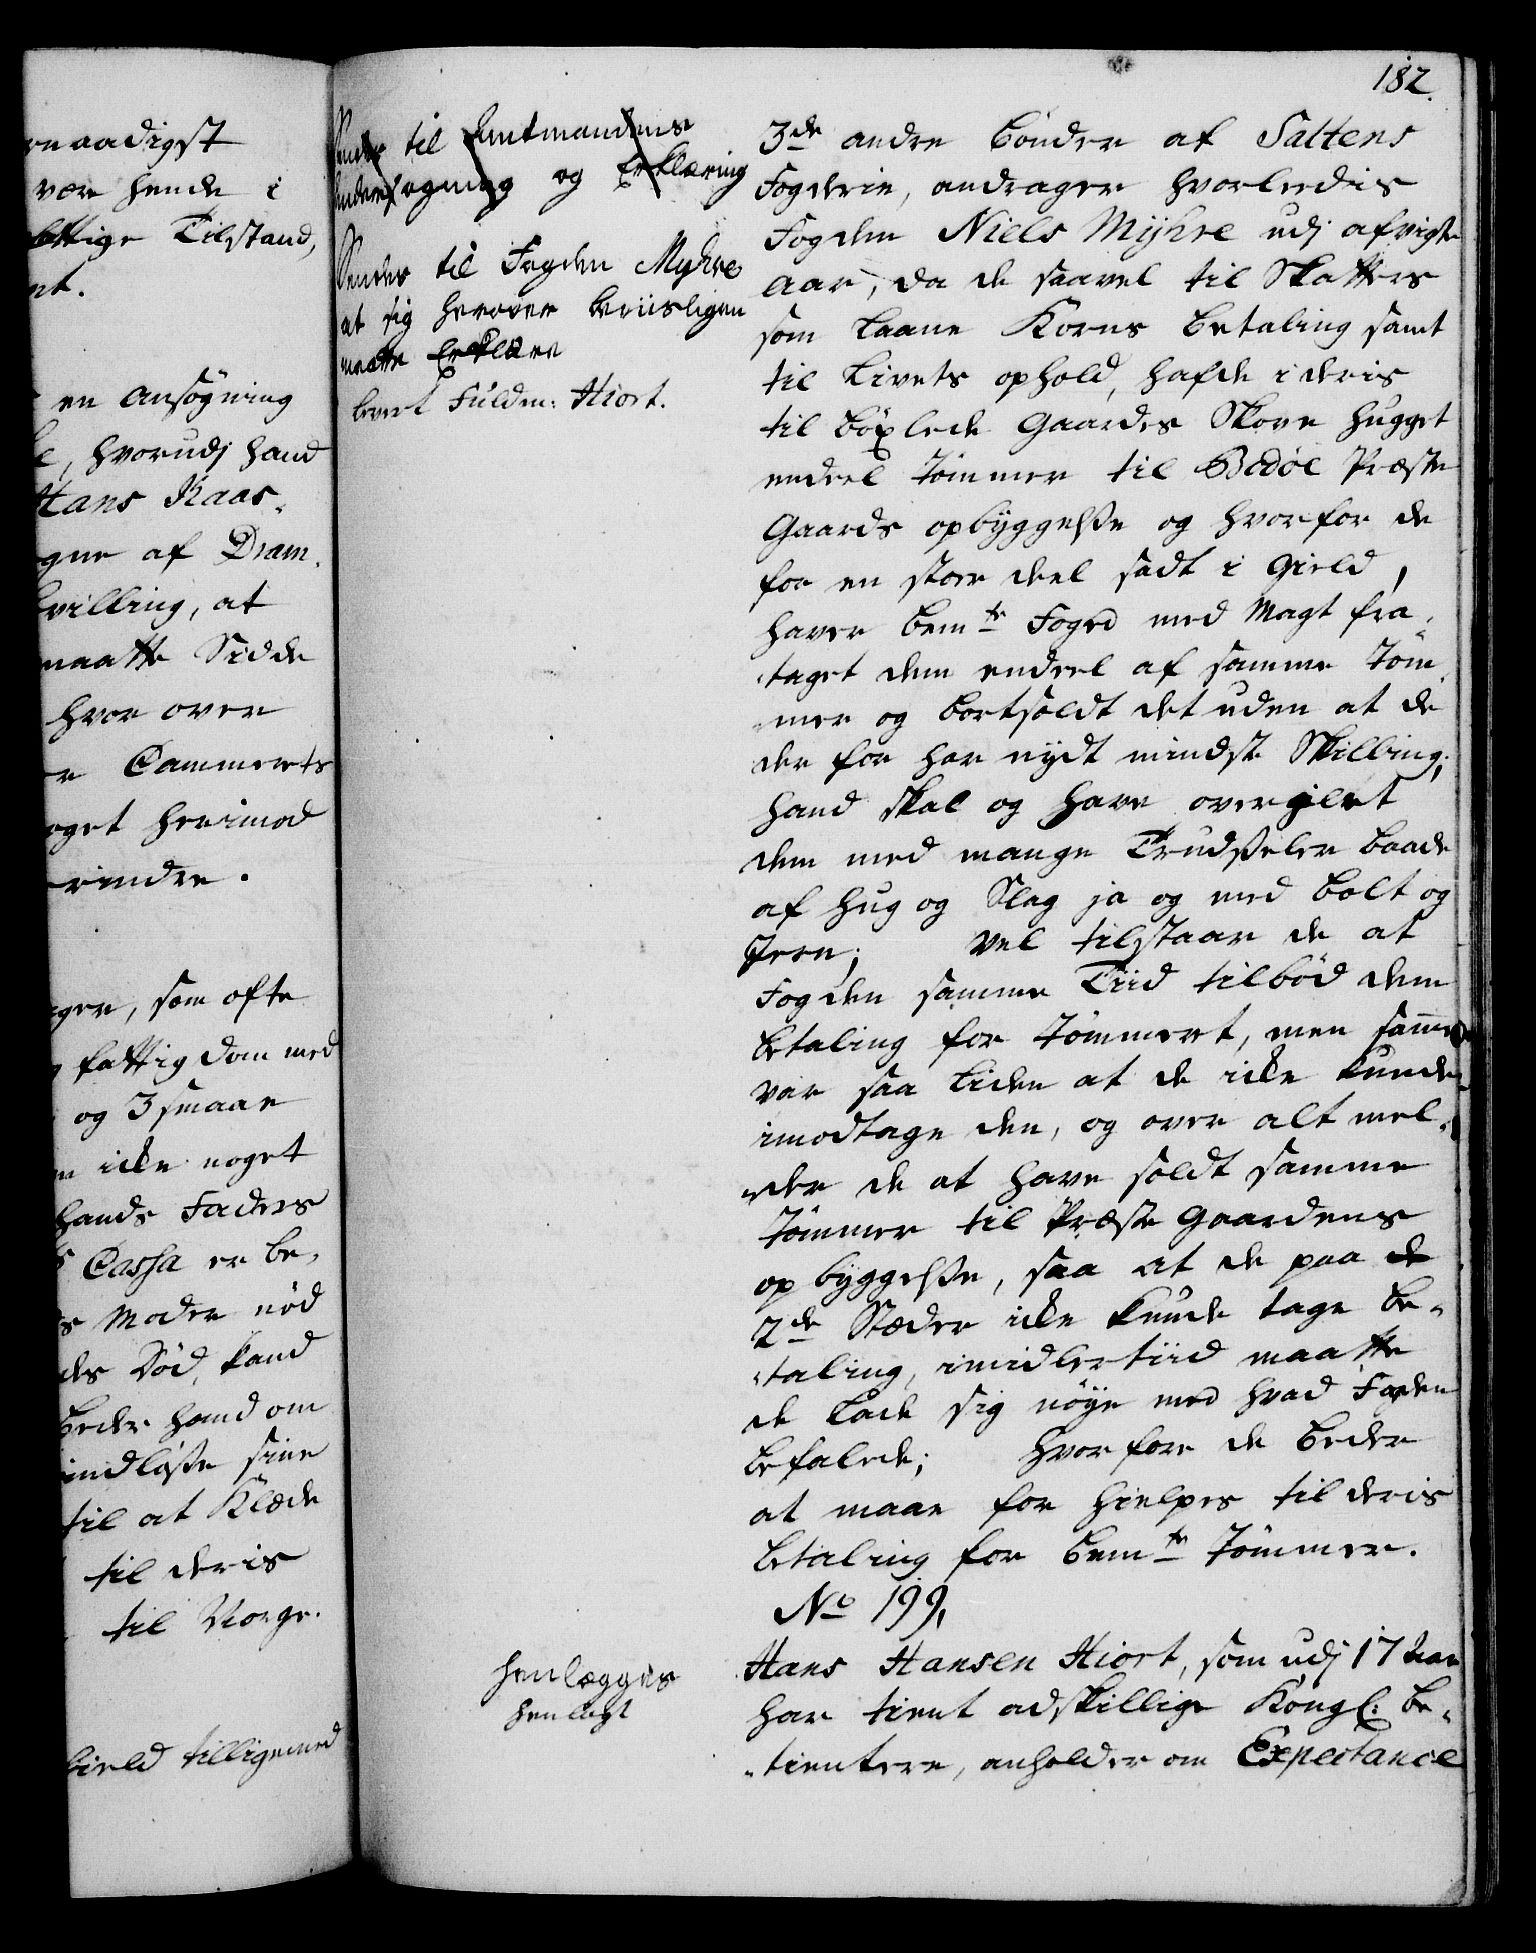 182.
naadigst
være hende i
ettige Tilstand,
nt.
en ansøgning
hvorudj hand
Hans Kaas.
gne af Dram.
villing, at
maatte Sidde
hvor over
Cammerets
oget herimod
rindre.
ger, som ofte
fattigdom med
og 3 smaae
icke noget
hands Faders
Cassa er be,
Moder nød
des Død, kand
Beder hand om
indløsse sine
til at Klæde
til deris
til Norge.
Gield tilligemed
Sendes til Amtmandens
Undersøgning og Erklæring
Sendes til Fogden Myhre
at sig herover beviisligen
maatte Erklære
levert Fuldm: Hiort.
henlægges
henlagt
3de andre bönder af Saltens
Fogderie, andrager hvorledis
Fogden Niels Mÿhre udj afvigte
aar, da de saavel til Skatters
som laane Korns betaling samt
til Livets ophold, hafde i deris
til böxlede Gaardes Skove hugget
endeel tömmer til Bodöe Præste
Gaards opbÿggelsse og hvorfor de
for en stor deel sadt i gield,
haver bemte Foged med Magt fra,
taget dem endeel af samme töm,
mer og bortsoldt det uden at de
der for har nÿdt mindste Skilling,
hand skal og have overjlet
dem med mange Trudsseler baade
af hug og Slag ja og med bolt og
Jern; vel tilstaar de at
Fogden samme Tiid tilböd dem
betaling for tömmeret, men samme
var saa liden at de icke kunde
imodtage den, og over alt mel,
der de at have soldt samme
tömmer til Præste gaardens
opbÿggelsse, saa at de paa de
2de Stæder icke kunde tage be,
taling, imidlertiid maatte
de lade sig nöÿe med hvad Fogden
befalede; hvorfore de beder
at maae for hielpes til deris
betaling for bemte tömmer.
No 199,
Hans Hansen Hiort, som udj 17 aar
har tient adskillige Kongl: be,
tientere, anholder om Expectance